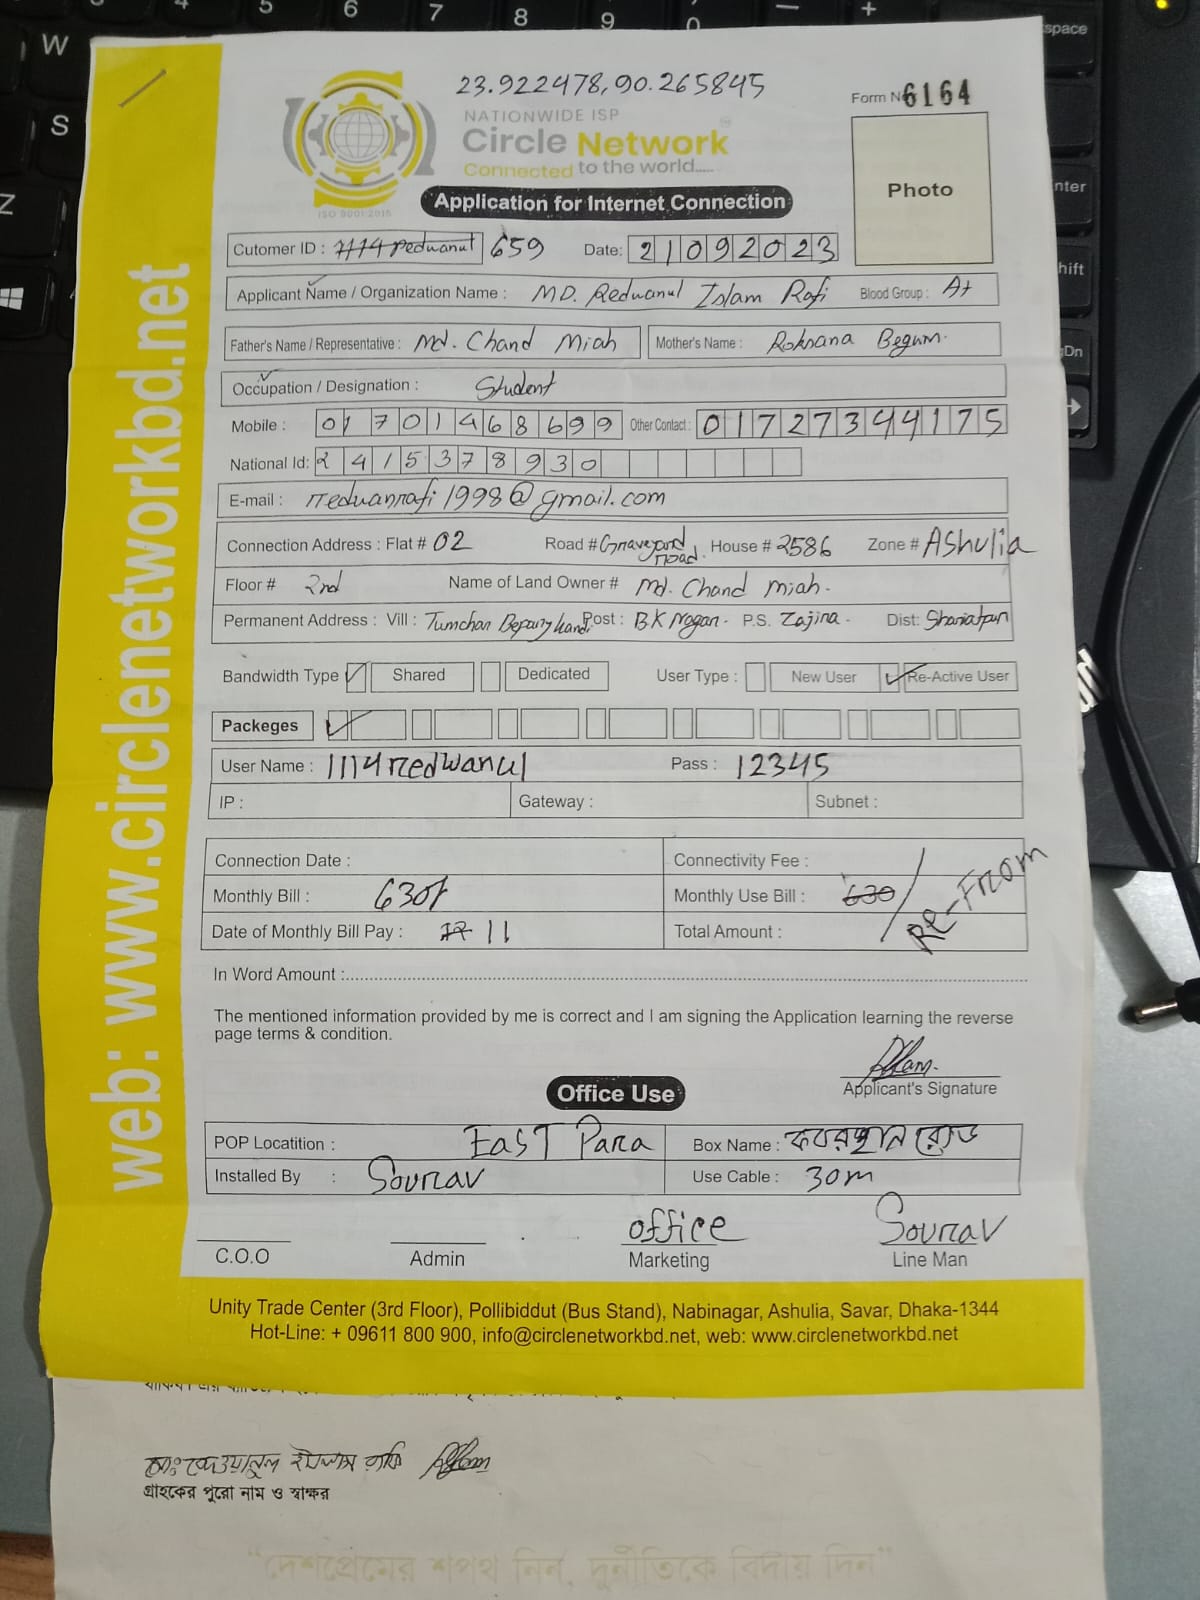 23.922478,90.265845
Form No 6164
NATIONWIDE ISP
Circle Network
Connected to the world.....
ISO 9001:2015
Photo
Application for Internet Connection
Cutomer ID : 1114 redwanul 659 Date: 21092023
Applicant Name / Organization Name : MD. Redwanul Islam Rafi Blood Group : A+
Father's Name / Representative : Md. Chand Miah Mother's Name : Roksana Begum.
Occupation / Designation : Student
Mobile : 01701468699 Other Contact : 01727344175
National Id: 2415378930
E-mail : redwanrafi1998@gmail.com
Connection Address : Flat # 02 Road # Graveyard Road. House # 2586 Zone # Ashulia
Floor # 2nd Name of Land Owner # Md. Chand Miah.
Permanent Address : Vill : Tumchar Bepary kandi Post : B.K Nagar. P.S. Zajira. Dist: Shariatpur
Bandwidth Type Shared Dedicated User Type : New User Re-Active User
Packeges
User Name : 1114redwanul Pass : 12345
IP : Gateway : Subnet :
Connection Date : Connectivity Fee :
Monthly Bill : 630/ Monthly Use Bill : 630
Re-From
Date of Monthly Bill Pay : 11 Total Amount :
In Word Amount :
The mentioned information provided by me is correct and I am signing the Application learning the reverse
page terms & condition.
Applicant's Signature
Office Use
POP Locatition : East Para Box Name : কবরস্থান রোড
Installed By : Sourav Use Cable : 30m
office Sourav
C.O.O Admin Marketing Line Man
Unity Trade Center (3rd Floor), Pollibiddut (Bus Stand), Nabinagar, Ashulia, Savar, Dhaka-1344
Hot-Line: + 09611 800 900, info@circlenetworkbd.net, web: www.circlenetworkbd.net
web: www.circlenetworkbd.net
মোঃ রেদওয়ানুল ইসলাম রাফি
গ্রাহকের পুরো নাম ও স্বাক্ষর
“দেশপ্রেমের শপথ নিন, দুর্নীতিকে বিদায় দিন”